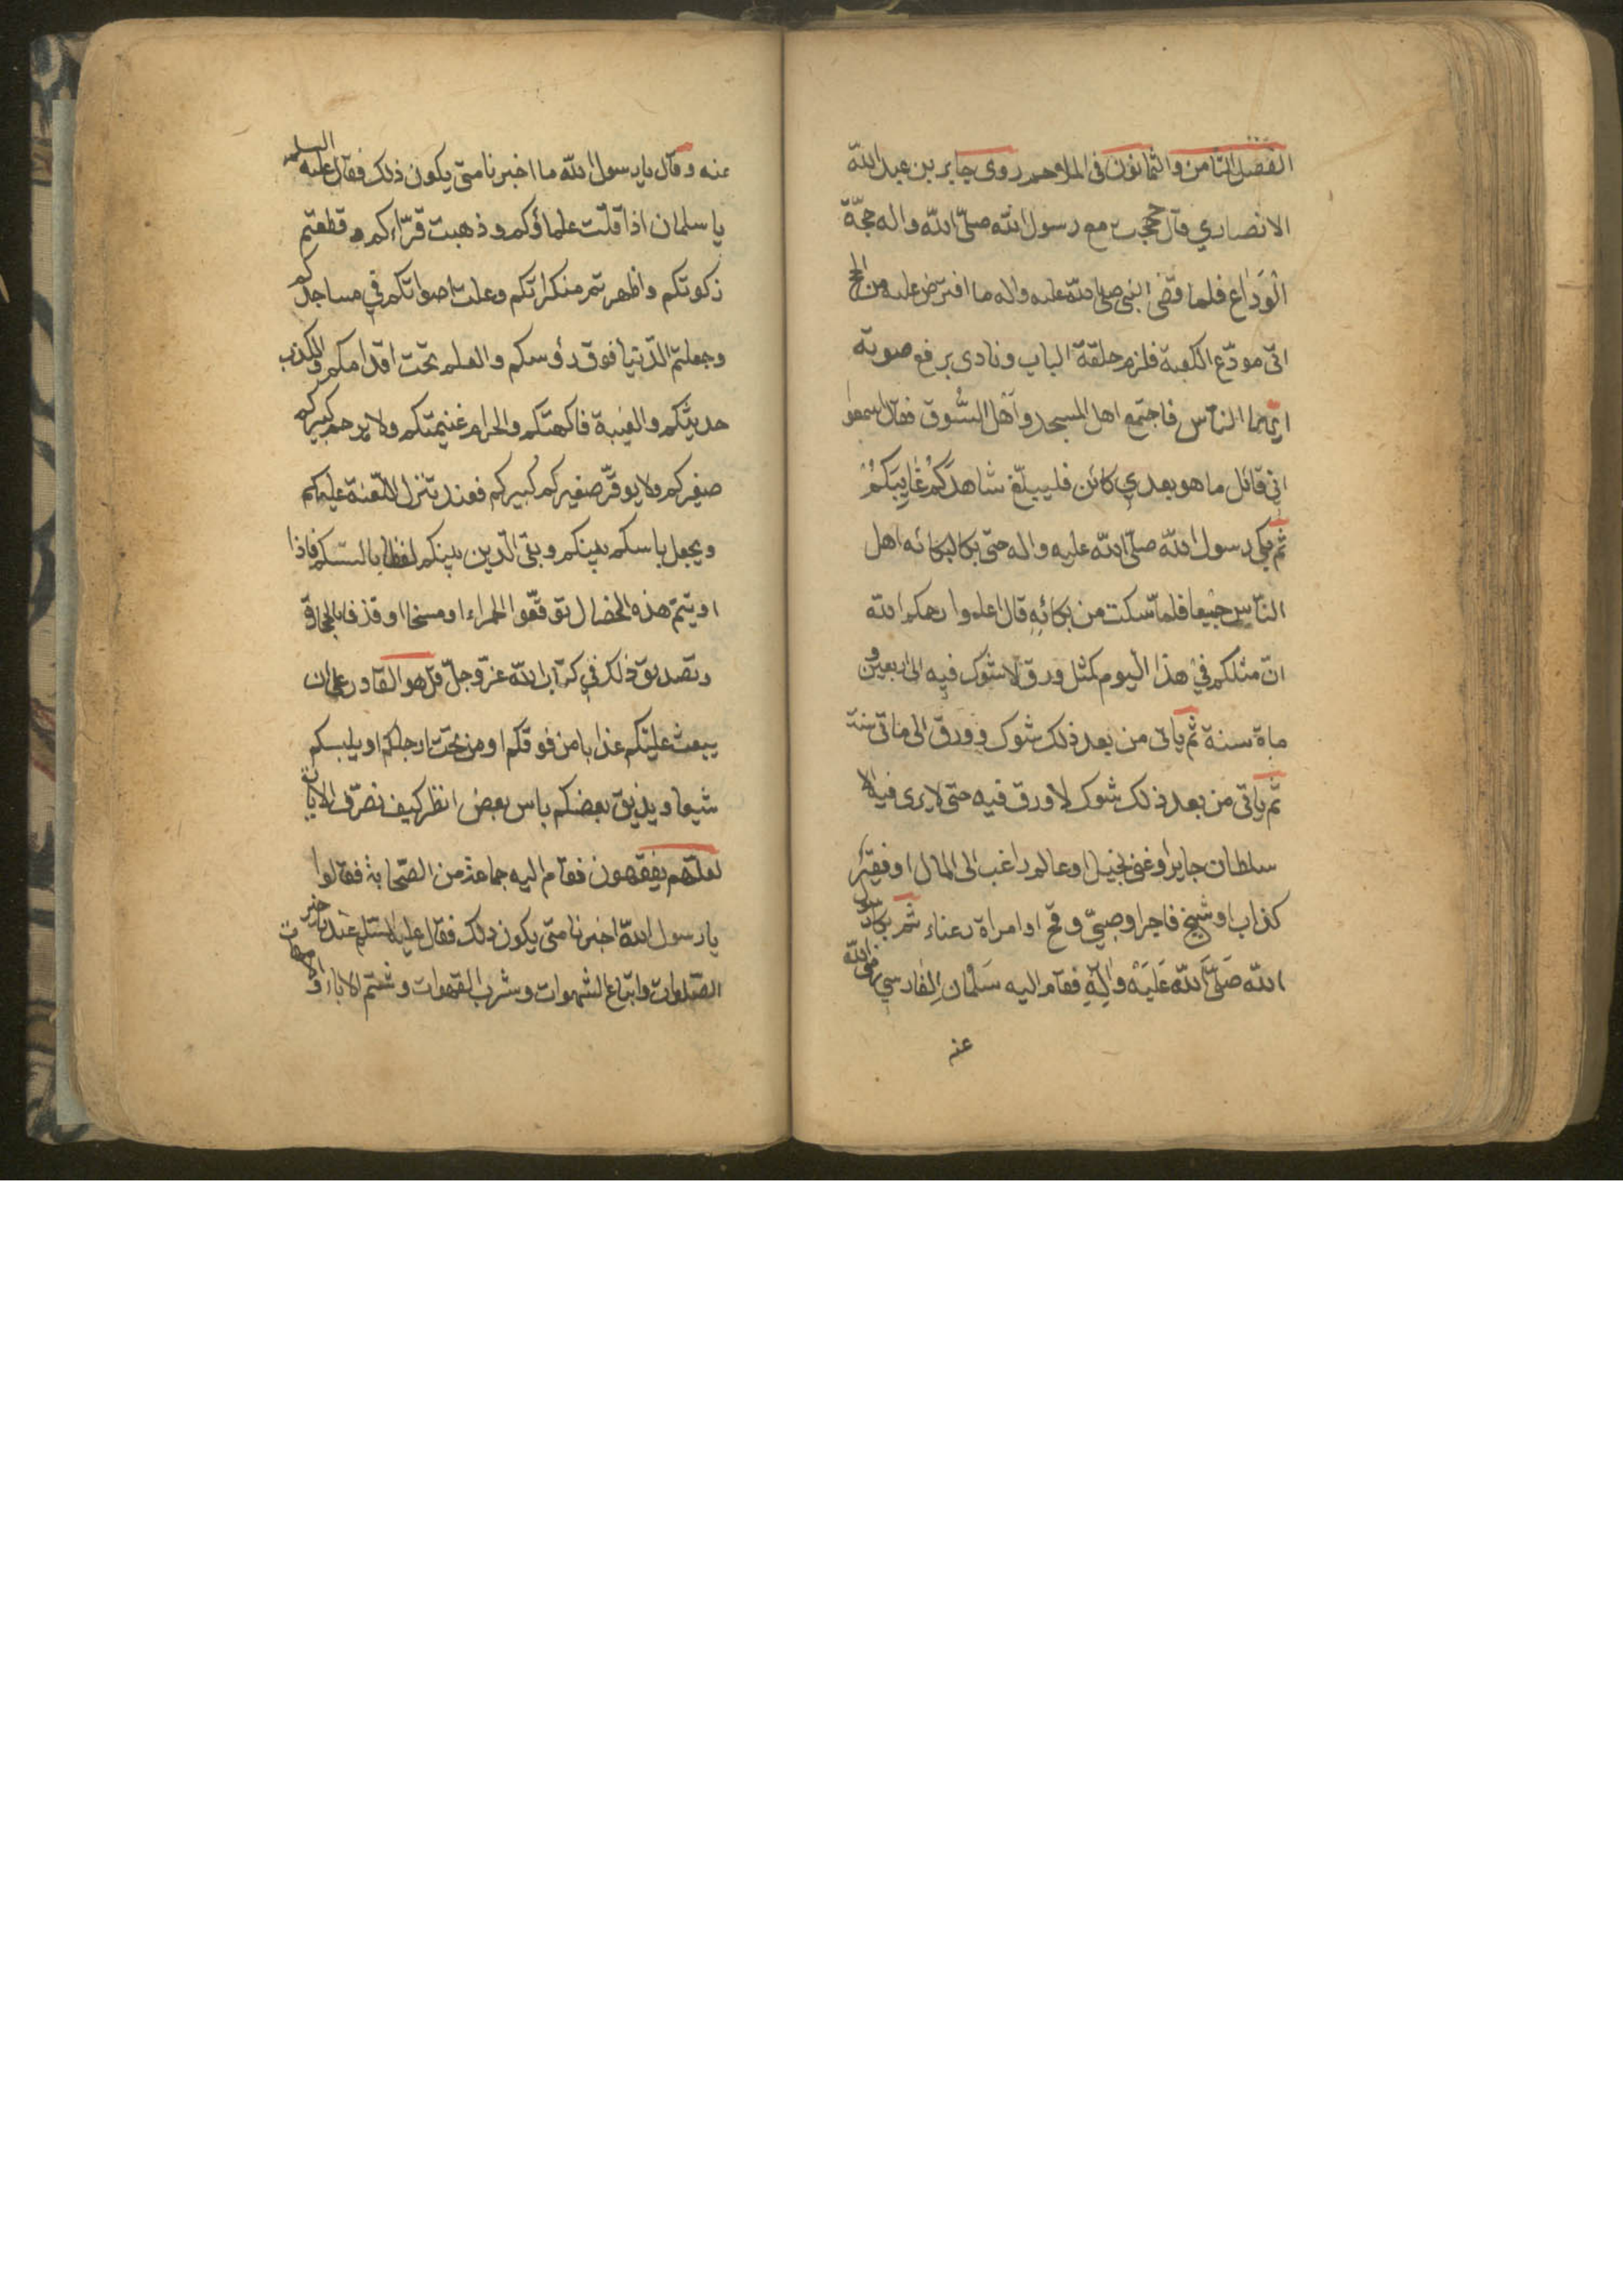 الفصل الثامن والثمانون في الملاحم روى جابر بن عبد الله
الانصاري قال حججت مع رسول الله صلّى الله واله حجّة
الوداع فلما قضى النبي صلى الله عليه واله ما افترض عليه من الحج
اتى مودّع الكعبة فلزم حلقة الباب ونادى برفع صوته
ايّها النّاس فاجتمع اهل المسجد واهل السّوق فقال اسمعوا
اني قائل ما هو بعدي كائن فليبلّغ شاهدكم غايبكم
ثم بكى رسول الله صلّى الله عليه واله حتى بكا لبكائه اهل
النّاس جميعا فلمّا سكت من بكائه قال اعلموا رحمكم الله
انّ مثلكم في هذا اليوم كمثل ورق لا شوك فيه الى اربعين و
ماة سنة ثم ياتى من بعد ذلك شوك وورق الى مأتى سنة
ثم ياتى من بعد ذلك شوك لا ورق فيه حتى لا يرى فيه الا
سلطان جاير او غنى بخيل او عالم راغب الى المال او فقير
كذاب او شيخ فاجر او صبيّ وقح او امراة رعناء ثم بكا رسول
الله صَلّى الله عَلَيْه وَالِهِ فقام اليه سَلْمان الفارسي رضى الله
عنه
عنه وقال يا رسول الله ما اخبرنا متى يكون ذلك فقال عليه السلم
يا سلمان اذا قلّت علماؤكم وذهبت قرّاءكم وقطعتم
زكوتكم واظهرتم منكراتكم وعلت اصواتكم في مساجدكم
وجعلتم الدّنيا فوق رؤسكم والعلم تحت اقدامكم والكذب
حديثكم والغيبة فاكهتكم والحرام غنيمتكم ولا يرحم كبيركم
صغيركم ولا يوقرّ صغيركم كبيركم فعند تنزل اللّعنة عليكم
ويجعل باسكم بينكم وبقى الدّين بينكم لفظا بالسنتكم فاذا
اوتيتم هذه الخصال توقّعوا الحمراء او مسخا او قذفا بالحجارة
وتصديق ذلك في كتاب الله عزّ وجلّ قل هو القادر على ان
يبعث عليكم عذابا من فوقكم او من تحت ارجلكم او يلبسكم
شيعا ويذيق بعضكم باس بعض انظر كيف نصرّف الايات
لعلّهم يفقهون فقام اليه جماعة من الصّحابة فقالوا
يا رسول الله اخبرنا متى يكون ذلك فقال عليه السّلم عند تاخير
الصّلوات واتباع الشهوات وشرب القهوات وشتم الاباء والامهات